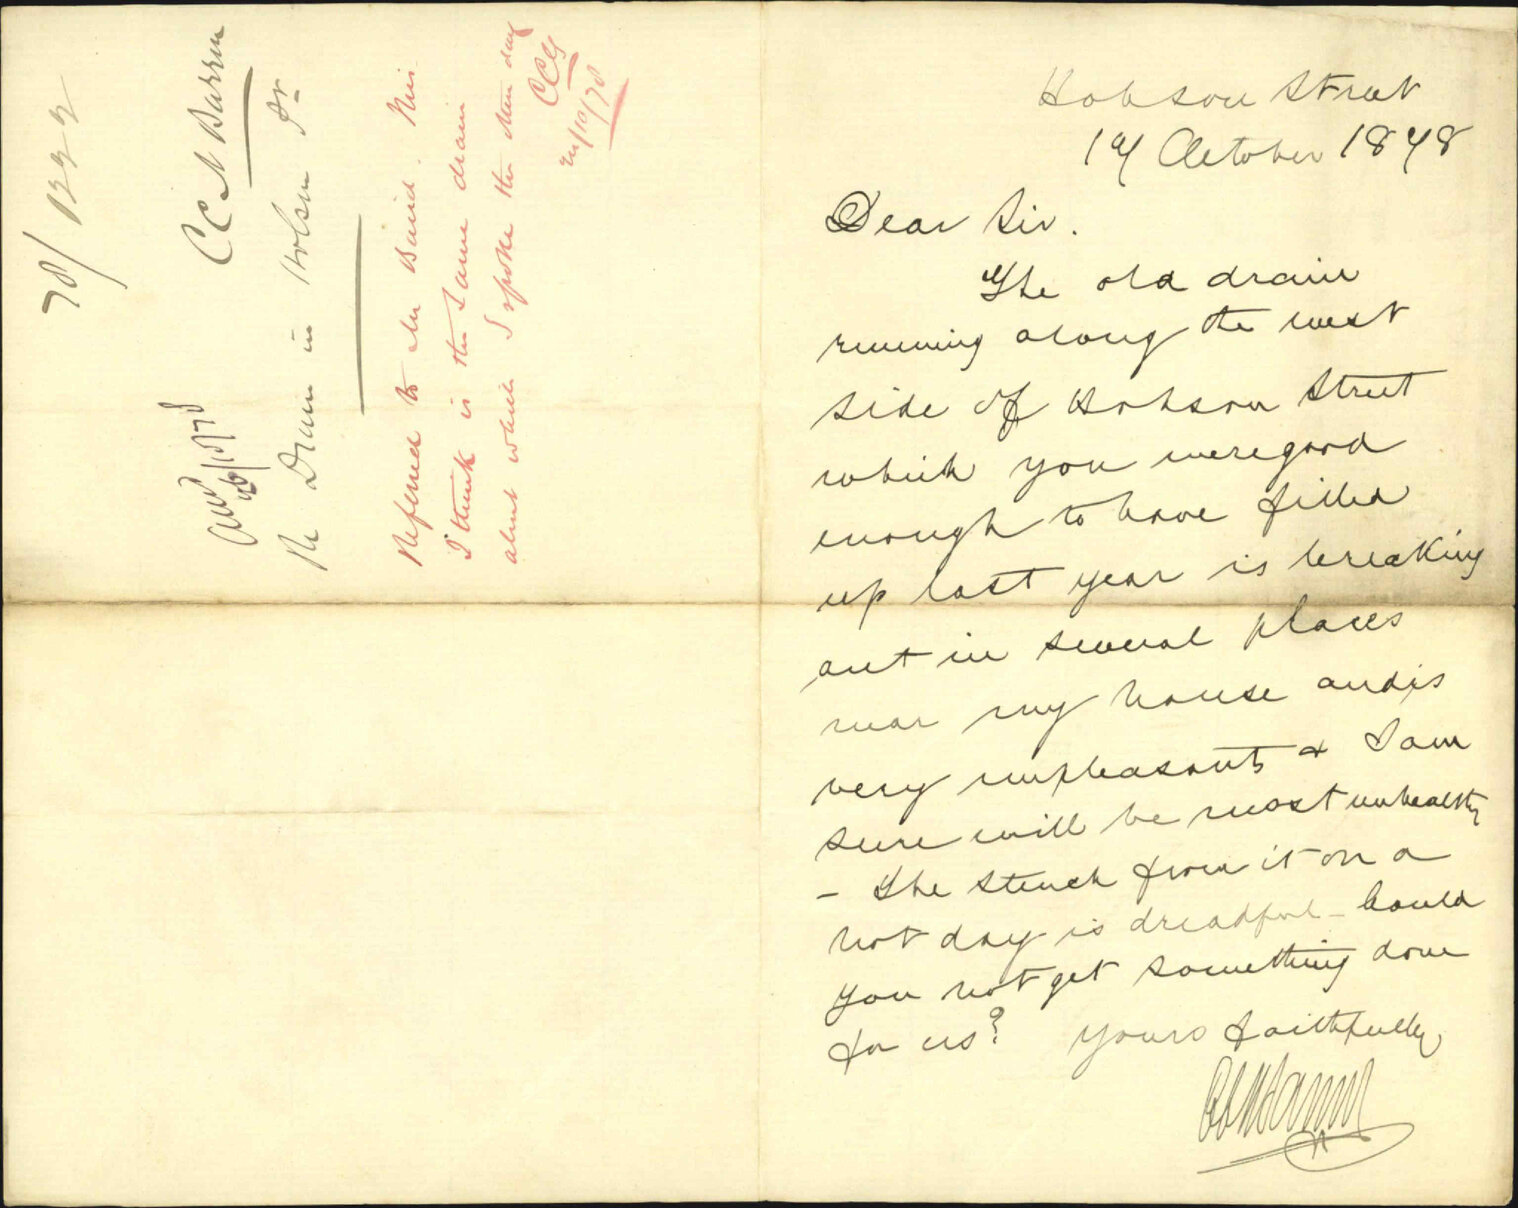 Hobson Street
17 October 1878
Dear Sir.
The old drain
running along the west
side of Hobson Street
which you were good
enough to have filled
up last year is breaking
out in several places
near my house and is
very unpleasant & I am
sure will be most unhealthy
- The stench from it on a
hot day is dreadful - Could
you not get something done
for us? Yours faithfully
CCN Barron
78/1222
CCN Barron
Ansd 26/10/78
Re Drain in Hobson St
Referred to Mr Baird.
I think is the same drain
about which I spoke the other day
CCG
24/10/78